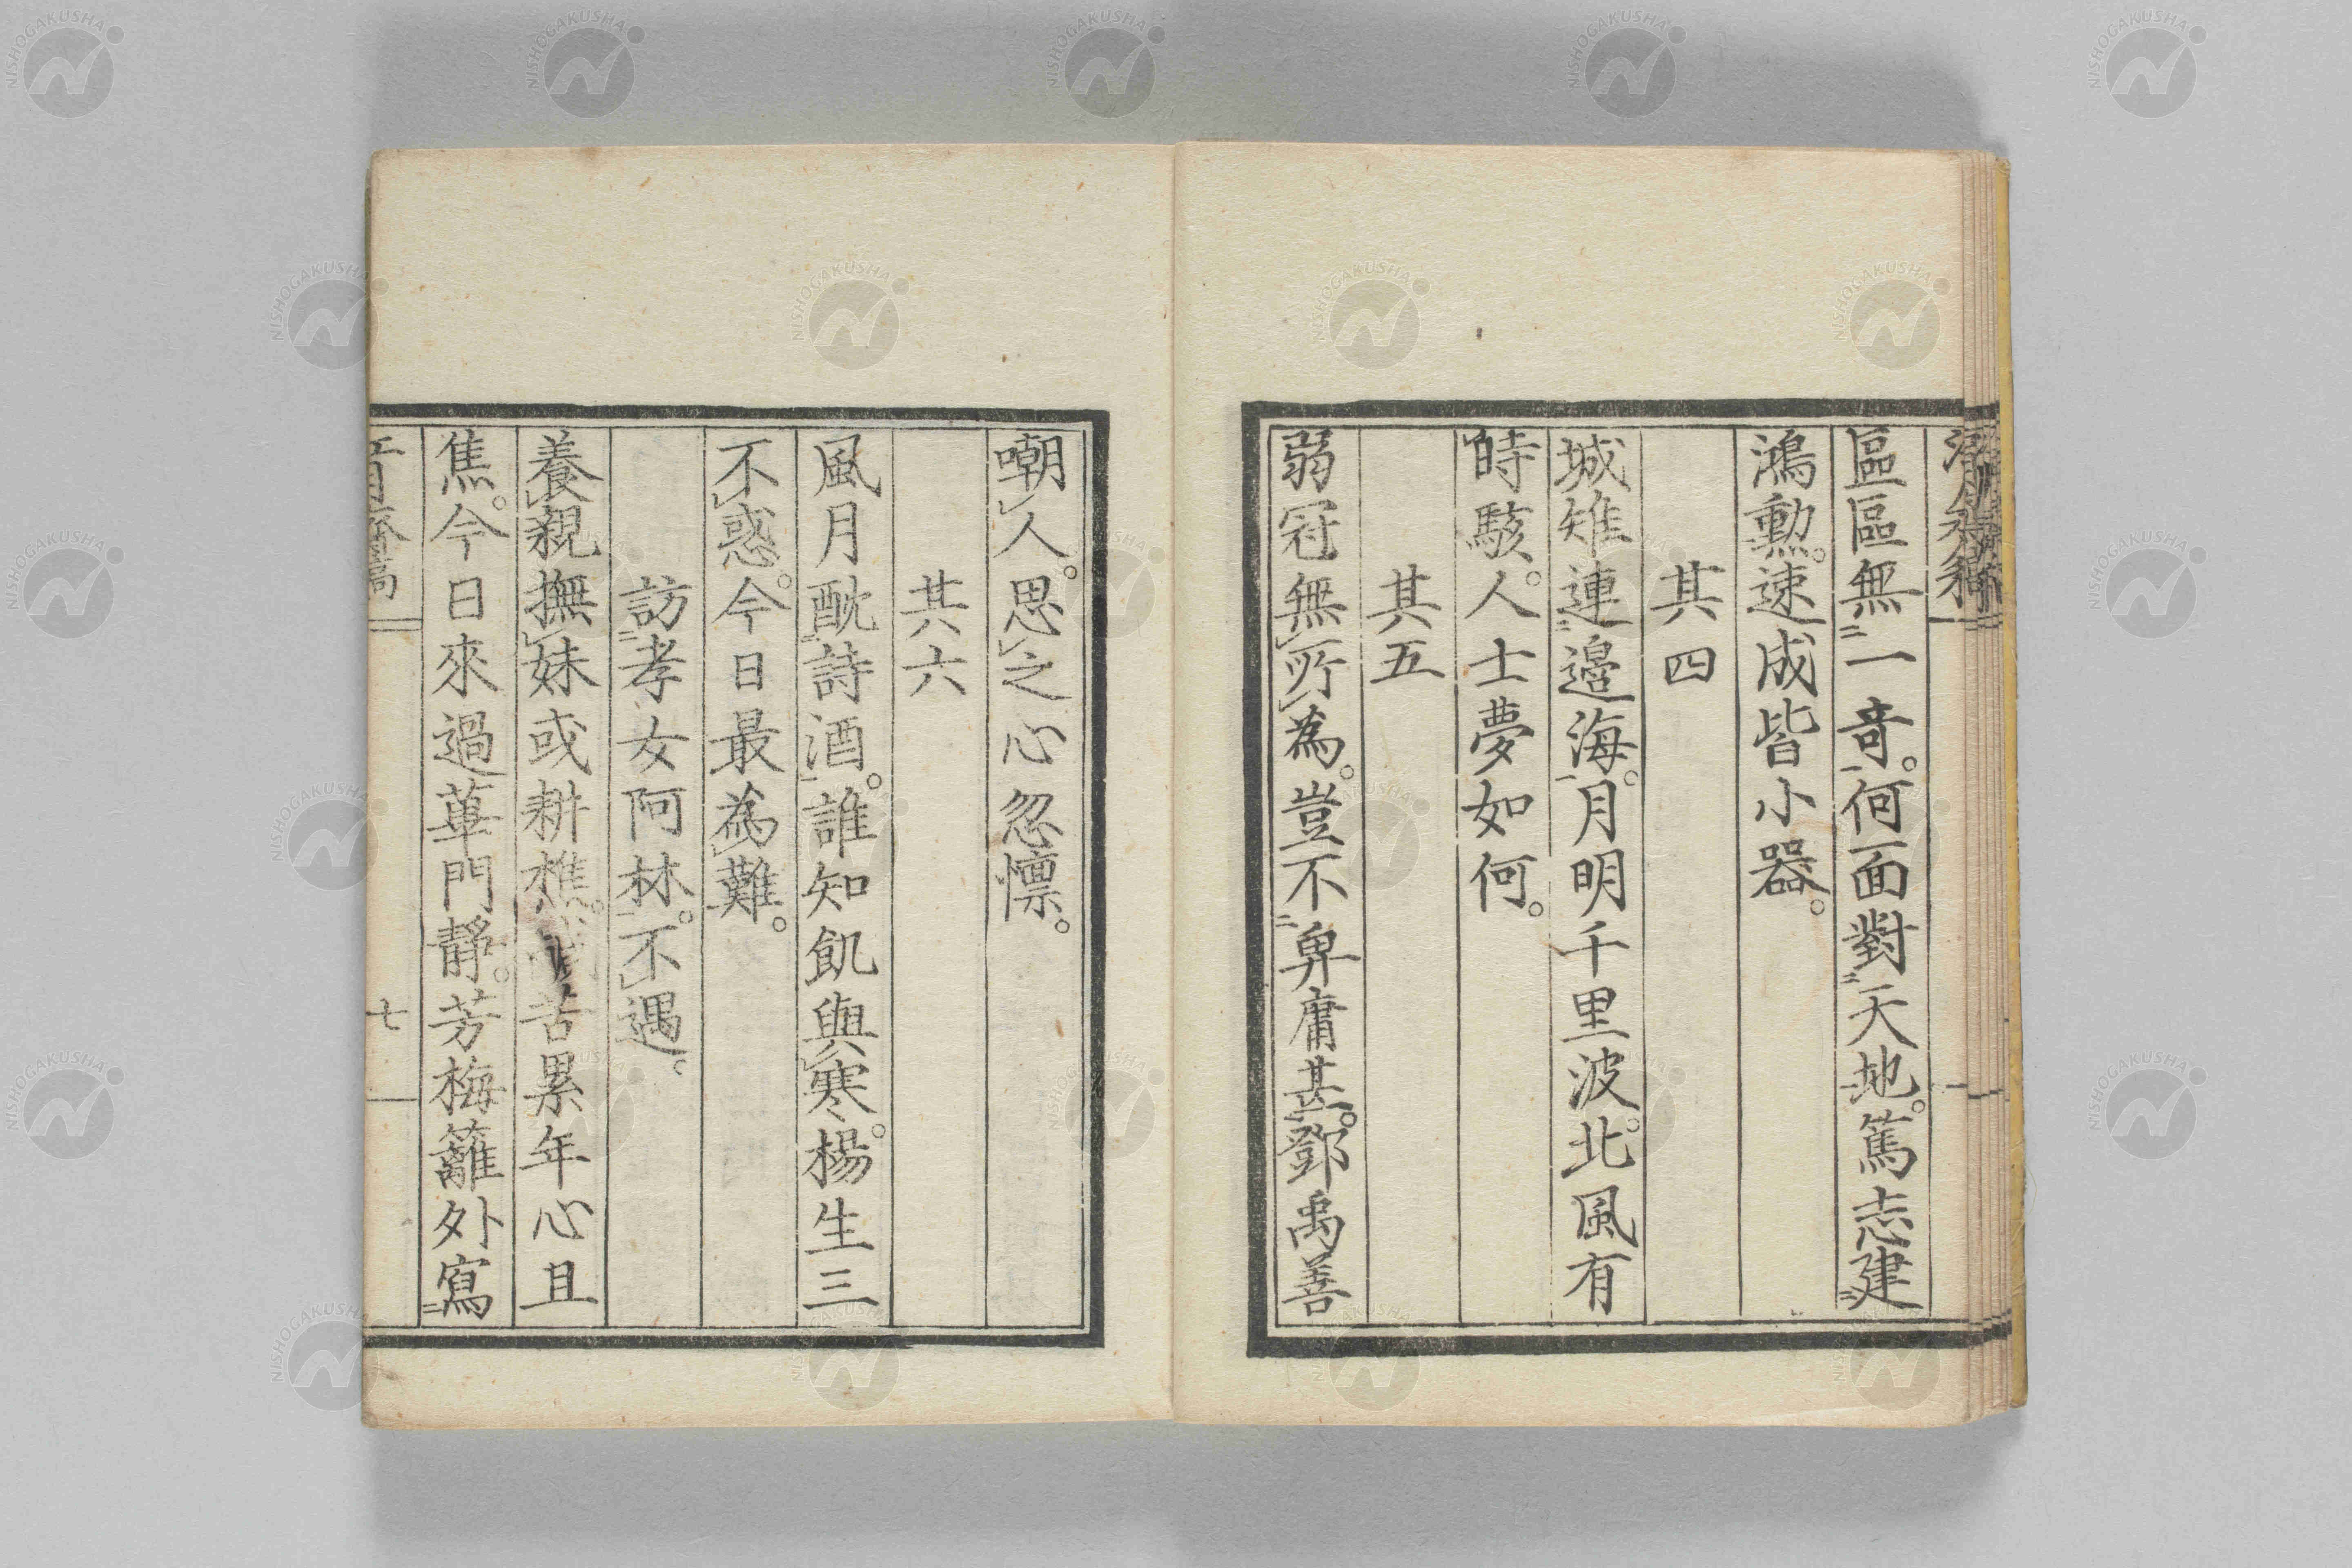 區區無一奇。何面對天地。篤志建
鴻勲。速成皆小器。
其四
城雉連邊海。月明千里波。北風有
時駭。人士夢如何。
其五
弱冠無所為。豈不卑庸甚。鄧禹善
嘲人。思之心忽懍。
其六
風月酖詩酒。誰知飢與寒。楊生三
不惑。今日最為難。
訪孝女阿林。不遇。
養親撫妹或耕樵。苦累年心且
焦。今日來過蓽門靜。芳梅籬外寫
七
NISHOGAKUSHA